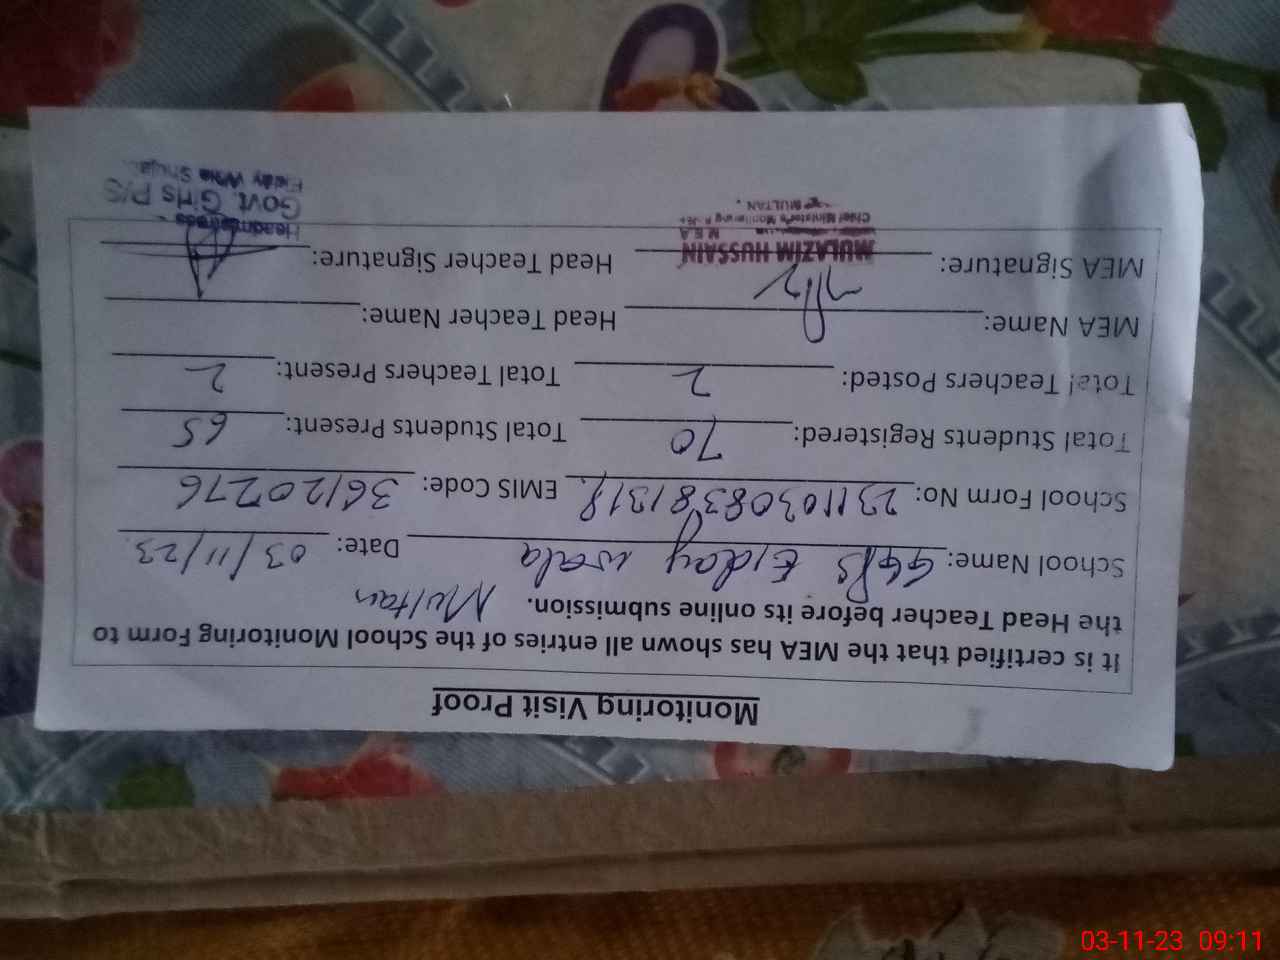 Monitoring Visit Proof
It is certified that the MEA has shown all entries of the School Monitoring Form to
the Head Teacher before its online submission. Multan
School Name: GGPS Eiday wala Date: 03/11/23
School Form No: EMIS Code: 36120276
Total Students Registered: 70 Total Students Present: 65
Total Teachers Posted: 2 Total Teachers Present: 2
MEA Name: Head Teacher Name:
MEA Signature: Head Teacher Signature:
MULAZIM HUSSAIN
M.E.A
Chief Minister's Monitoring
MULTAN.
Headmistress
Govt. Girls P/S
Wala Shuja
03-11-23 09:11